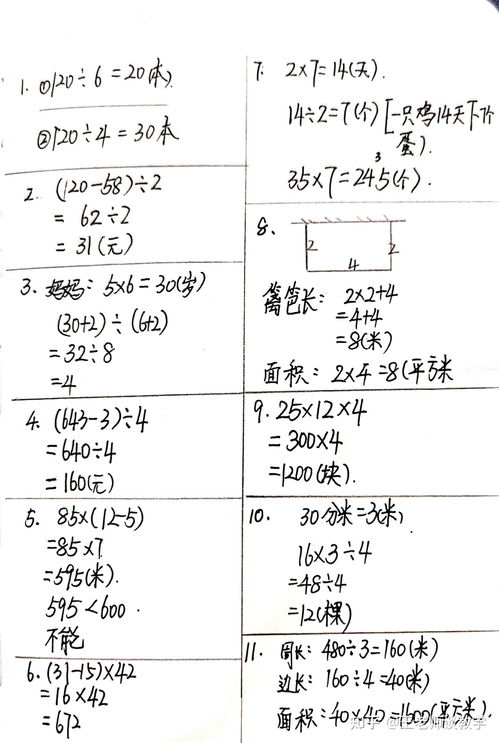 1. ①120÷6=20(本)
②120÷4=30本
2. (120-58)÷2
= 62÷2
= 31(元)
3. 妈妈: 5×6=30(岁)
(30+2)÷(6+2)
=32÷8
=4
4. (643-3)÷4
=640÷4
=160(元)
5. 85×(12-5)
=85×7
=595(米).
595<600.
不能
6. (31-15)×42
=16×42
=672
7. 2×7=14(天).
14÷2=7(个)[一只鸡14天下7个
蛋).
35×7=245(个).
3
8.
2
2
4
篱笆长: 2×2+4
=4+4
=8(米)
面积: 2×4=8(平方米
9. 25×12×4
=300×4
=1200(块).
10. 30分米=3(米)
16×3÷4
=48÷4
=12(棵)
11. 周长: 480÷3=160(米)
边长: 160÷4=40(米)
面积: 40×40=1600(平方米).
知乎 @王老师谈教学